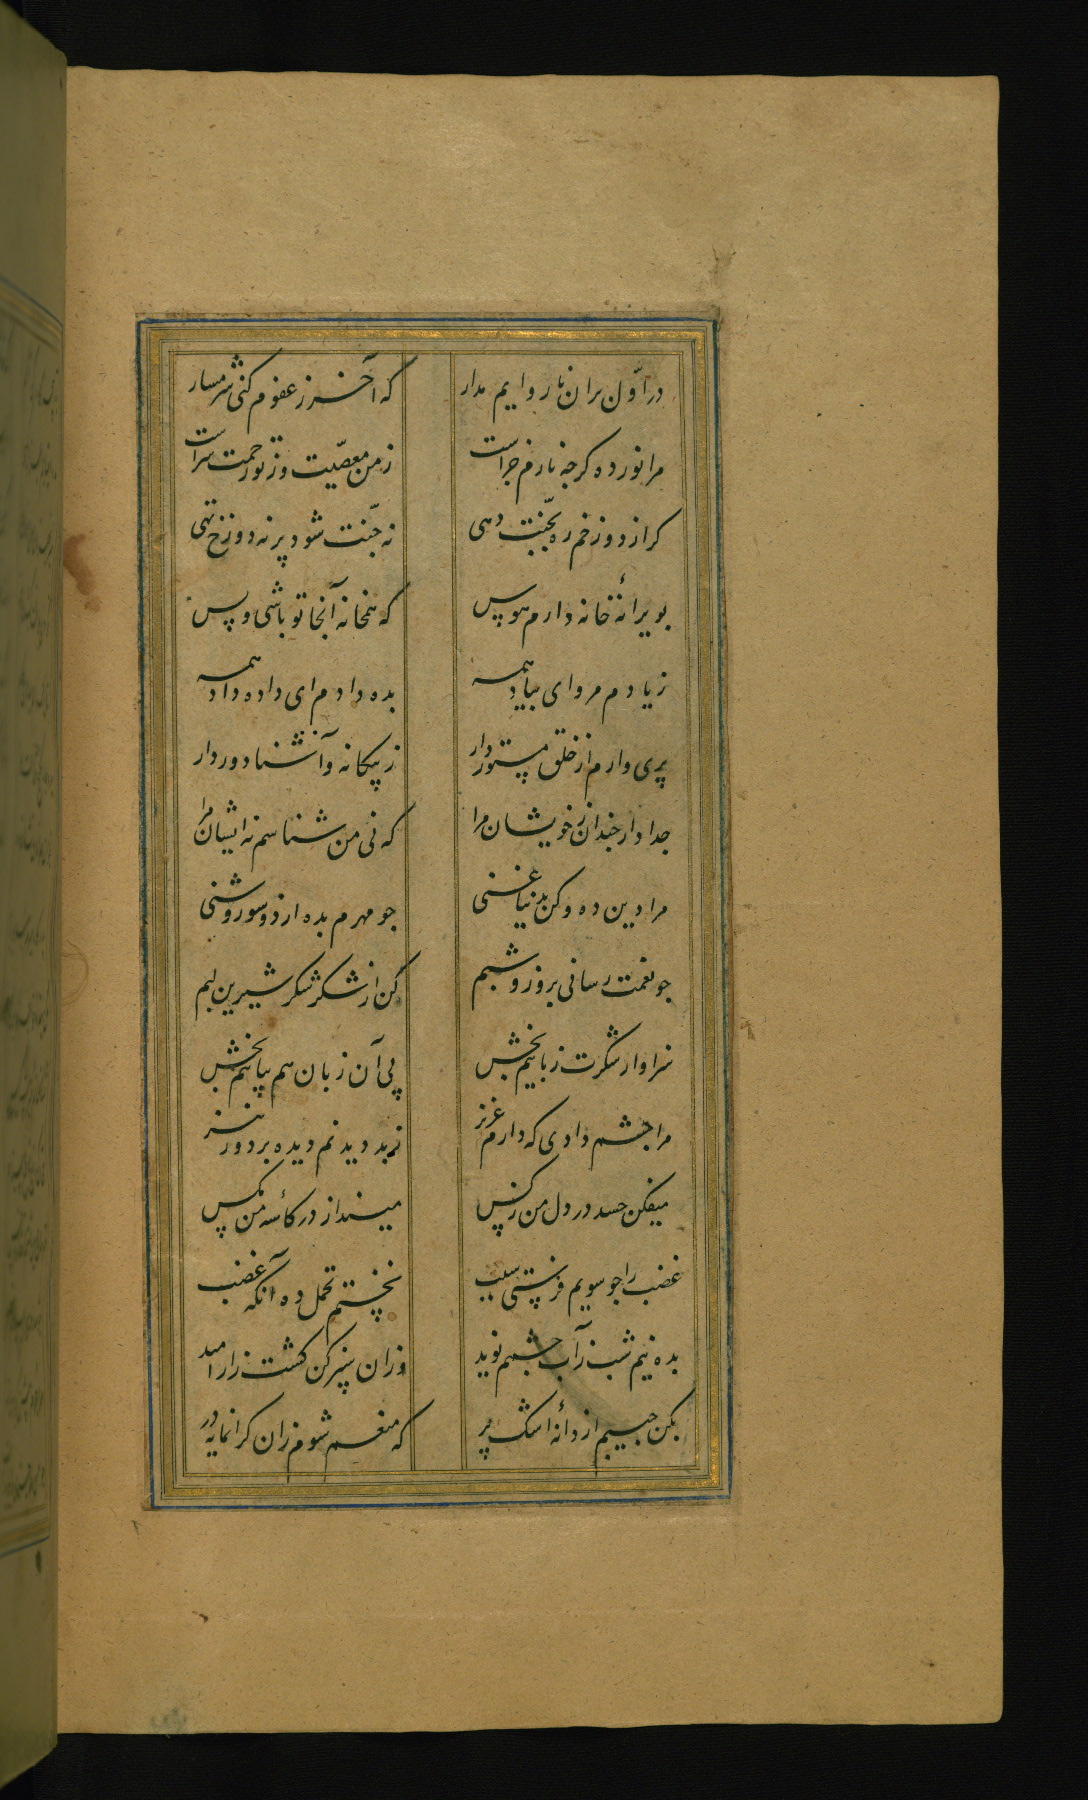 در اوّل بران ناروایم مدار که آخر ز عفوم کنی شرمسار
مرا نور ده کرچه نارم جزاست ز من معصیّت وز تو رحمت سزاست
کر از دوزخم ره بجنّت دهی نه جنّت شود پر نه دوزخ تهی
بویرانهٔ خانه دارم هوس که همخانه آنجا تو باشی و بس
ز یادم مرو ای بیادت همه بده دادم ای داده داد همه
پری وارم از خلق مستور دار ز بیکانه و آشنا دور دار
جدا دار چندان ز خویشان مرا که نی من شناسم نه ایشان مرا
مرا دین ده و کن بدنیا غنی چو مهرم بده از دو سو روشنی
چو نعمت رسانی بروز و شبم کن از شکر شکر شیرین لبم
سزاوار شکرت زبانیم بخش پی آن زبان هم بیانیم بخش
مرا چشم دادی که دارم عزیز ز بد دیدنم دیده بردوز نیز
میفکن حسد در دل من ز کس مینداز در کاسهٔ من مکس
غضب را چو سویم فرستی سبب نخستم تحمل ده آنکه غضب
بده نیم شب ز آب چشمم نوید وزان سبز کن کشت زار امید
بکن جیبم از دانهٔ اشک پر که منعم شوم زان کرانمایه در